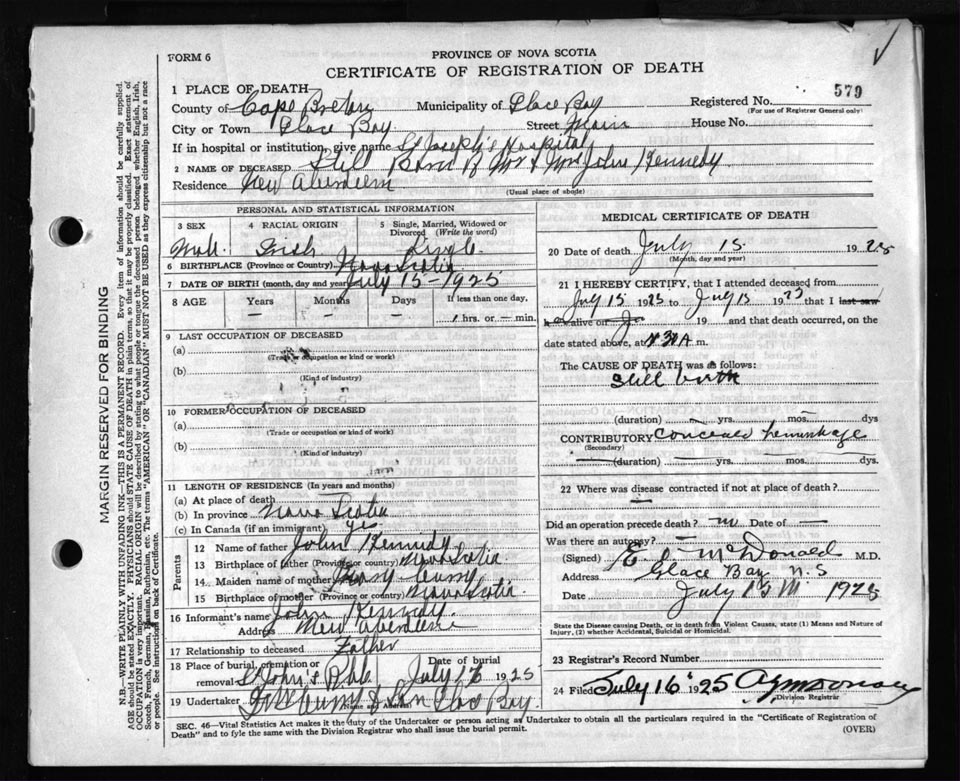 FORM 6
PROVINCE OF NOVA SCOTIA
CERTIFICATE OF REGISTRATION OF DEATH
1 PLACE OF DEATH
579
County of Cape Breton Municipality of Glace Bay Registered No.
(For use of Registrar General only)
City or Town Glace Bay Street Main House No.
If in hospital or institution, give name St Joseph's Hospital
2 NAME OF DECEASED Still Born B Mr & Mrs John Kennedy
Residence New Aberdeen
(Usual place of abode)
PERSONAL AND STATISTICAL INFORMATION
3 SEX 4 RACIAL ORIGIN 5 Single, Married, Widowed or Divorced (Write the word)
Male Irish Single
6 BIRTHPLACE (Province or Country) Nova Scotia
7 DATE OF BIRTH (month, day and year) July 15 - 1925
8 AGE Years Months Days If less than one day,
— — — hrs. or — min.
9 LAST OCCUPATION OF DECEASED
(a)
(Trade or occupation or kind or work)
(b)
(Kind of industry)
10 FORMER OCCUPATION OF DECEASED
(a)
(Trade or occupation or kind of work)
(b)
(Kind of industry)
11 LENGTH OF RESIDENCE (In years and months)
(a) At place of death
(b) In province Nova Scotia
(c) In Canada (if an immigrant) yes
Parents
12 Name of father John Kennedy
13 Birthplace of father (Province or country) Nova Scotia
14 Maiden name of mother Mary Curry
15 Birthplace of mother (Province or country) Nova Scotia
16 Informant's name John Kennedy
Address New Aberdeen
17 Relationship to deceased Father
18 Place of burial, cremation or removal St John's Date of burial July 1925
19 Undertaker Curry & Son Glace Bay
Name and Address
MEDICAL CERTIFICATE OF DEATH
20 Date of death July 15 1925
(Month, day and year)
21 I HEREBY CERTIFY, that I attended deceased from
July 15 1925 to July 15 1925 that I last saw
h alive on 19 and that death occurred, on
date stated above, at m.
The CAUSE OF DEATH was as follows:
Still birth
(duration) yrs. mos. dys
CONTRIBUTORY Concealed hemorrhage
(Secondary)
(duration) yrs. mos. dys.
22 Where was disease contracted if not at place of death?
—
Did an operation precede death? no Date of —
Was there an autopsy? —
(Signed) McDonald M.D.
Address Glace Bay N.S
Date July 15th 1925
State the Disease causing Death, or to death from Violent Causes, state (1) Means and Nature of
Injury, (2) whether Accidental, Suicidal or Homicidal.
23 Registrar's Record Number
24 Filed July 16 1925
Division Registrar
SEC. 46—Vital Statistics Act makes it the duty of the Undertaker or person acting as Undertaker to obtain all the particulars required in the "Certificate of Registration of
Death" and to fyle the same with the Division Registrar who shall issue the burial permit. (OVER)
MARGIN RESERVED FOR BINDING
N.B.—WRITE PLAINLY WITH UNFADING INK—THIS IS A PERMANENT RECORD. Every item of information should be carefully supplied.
AGE should be stated EXACTLY. PHYSICIANS should STATE CAUSE OF DEATH in plain terms, so that it may be properly classified. Exact statement of
OCCUPATION is very important. RACIAL ORIGIN will be described by stating to what people or tongue the deceased person belonged whether English, Irish,
Scotch, French, German, Russian, Ruthenian, etc. The terms "AMERICAN" OR "CANADIAN" MUST NOT BE USED as they express citizenship but not a race
or people. See instructions on back of Certificate.